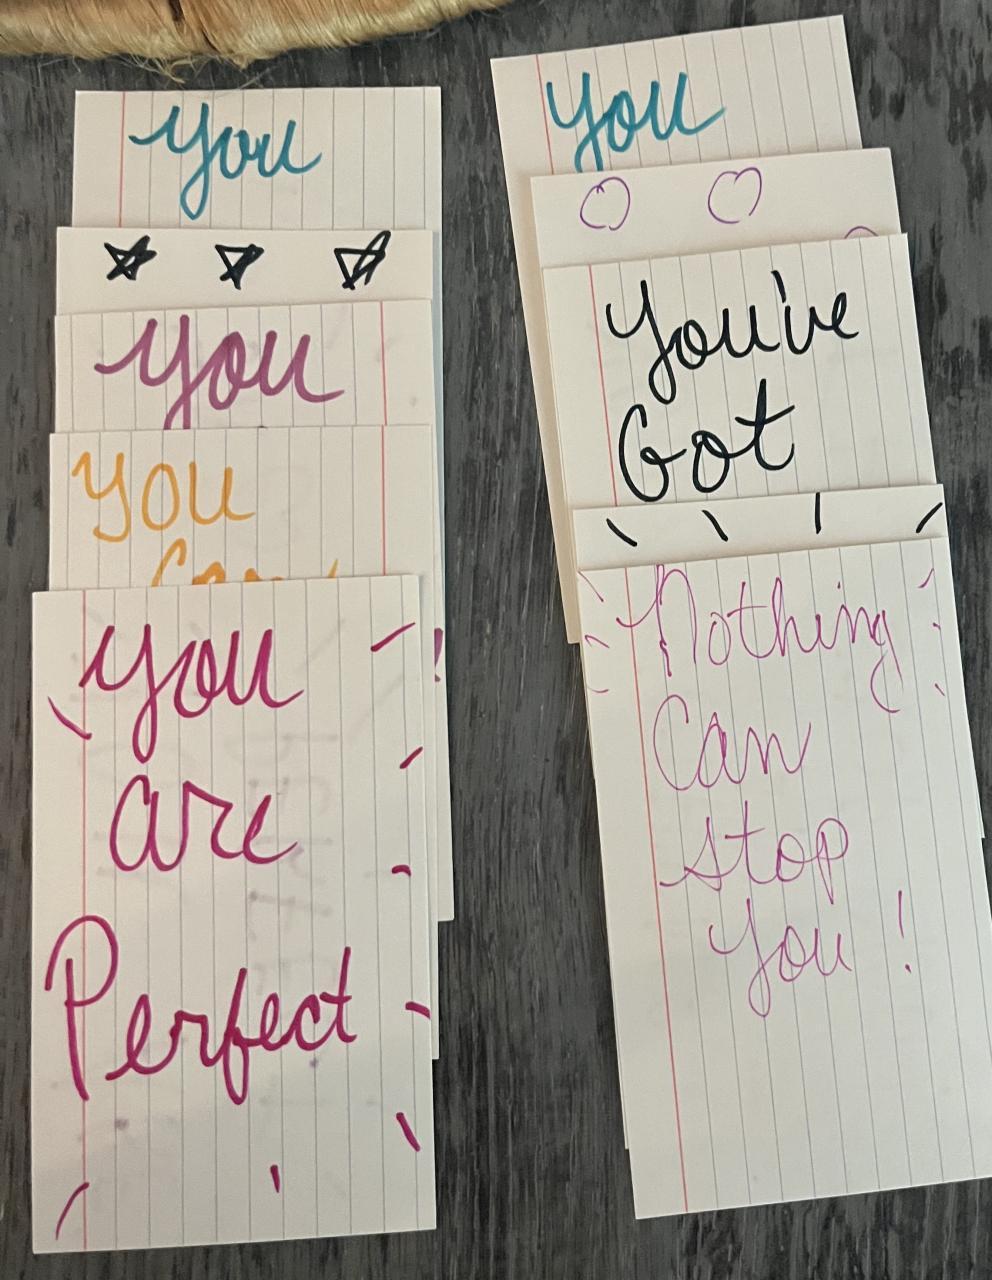 You
You
You
Can
You
are
Perfect
You
You've
Got
Nothing
Can
Stop
You!